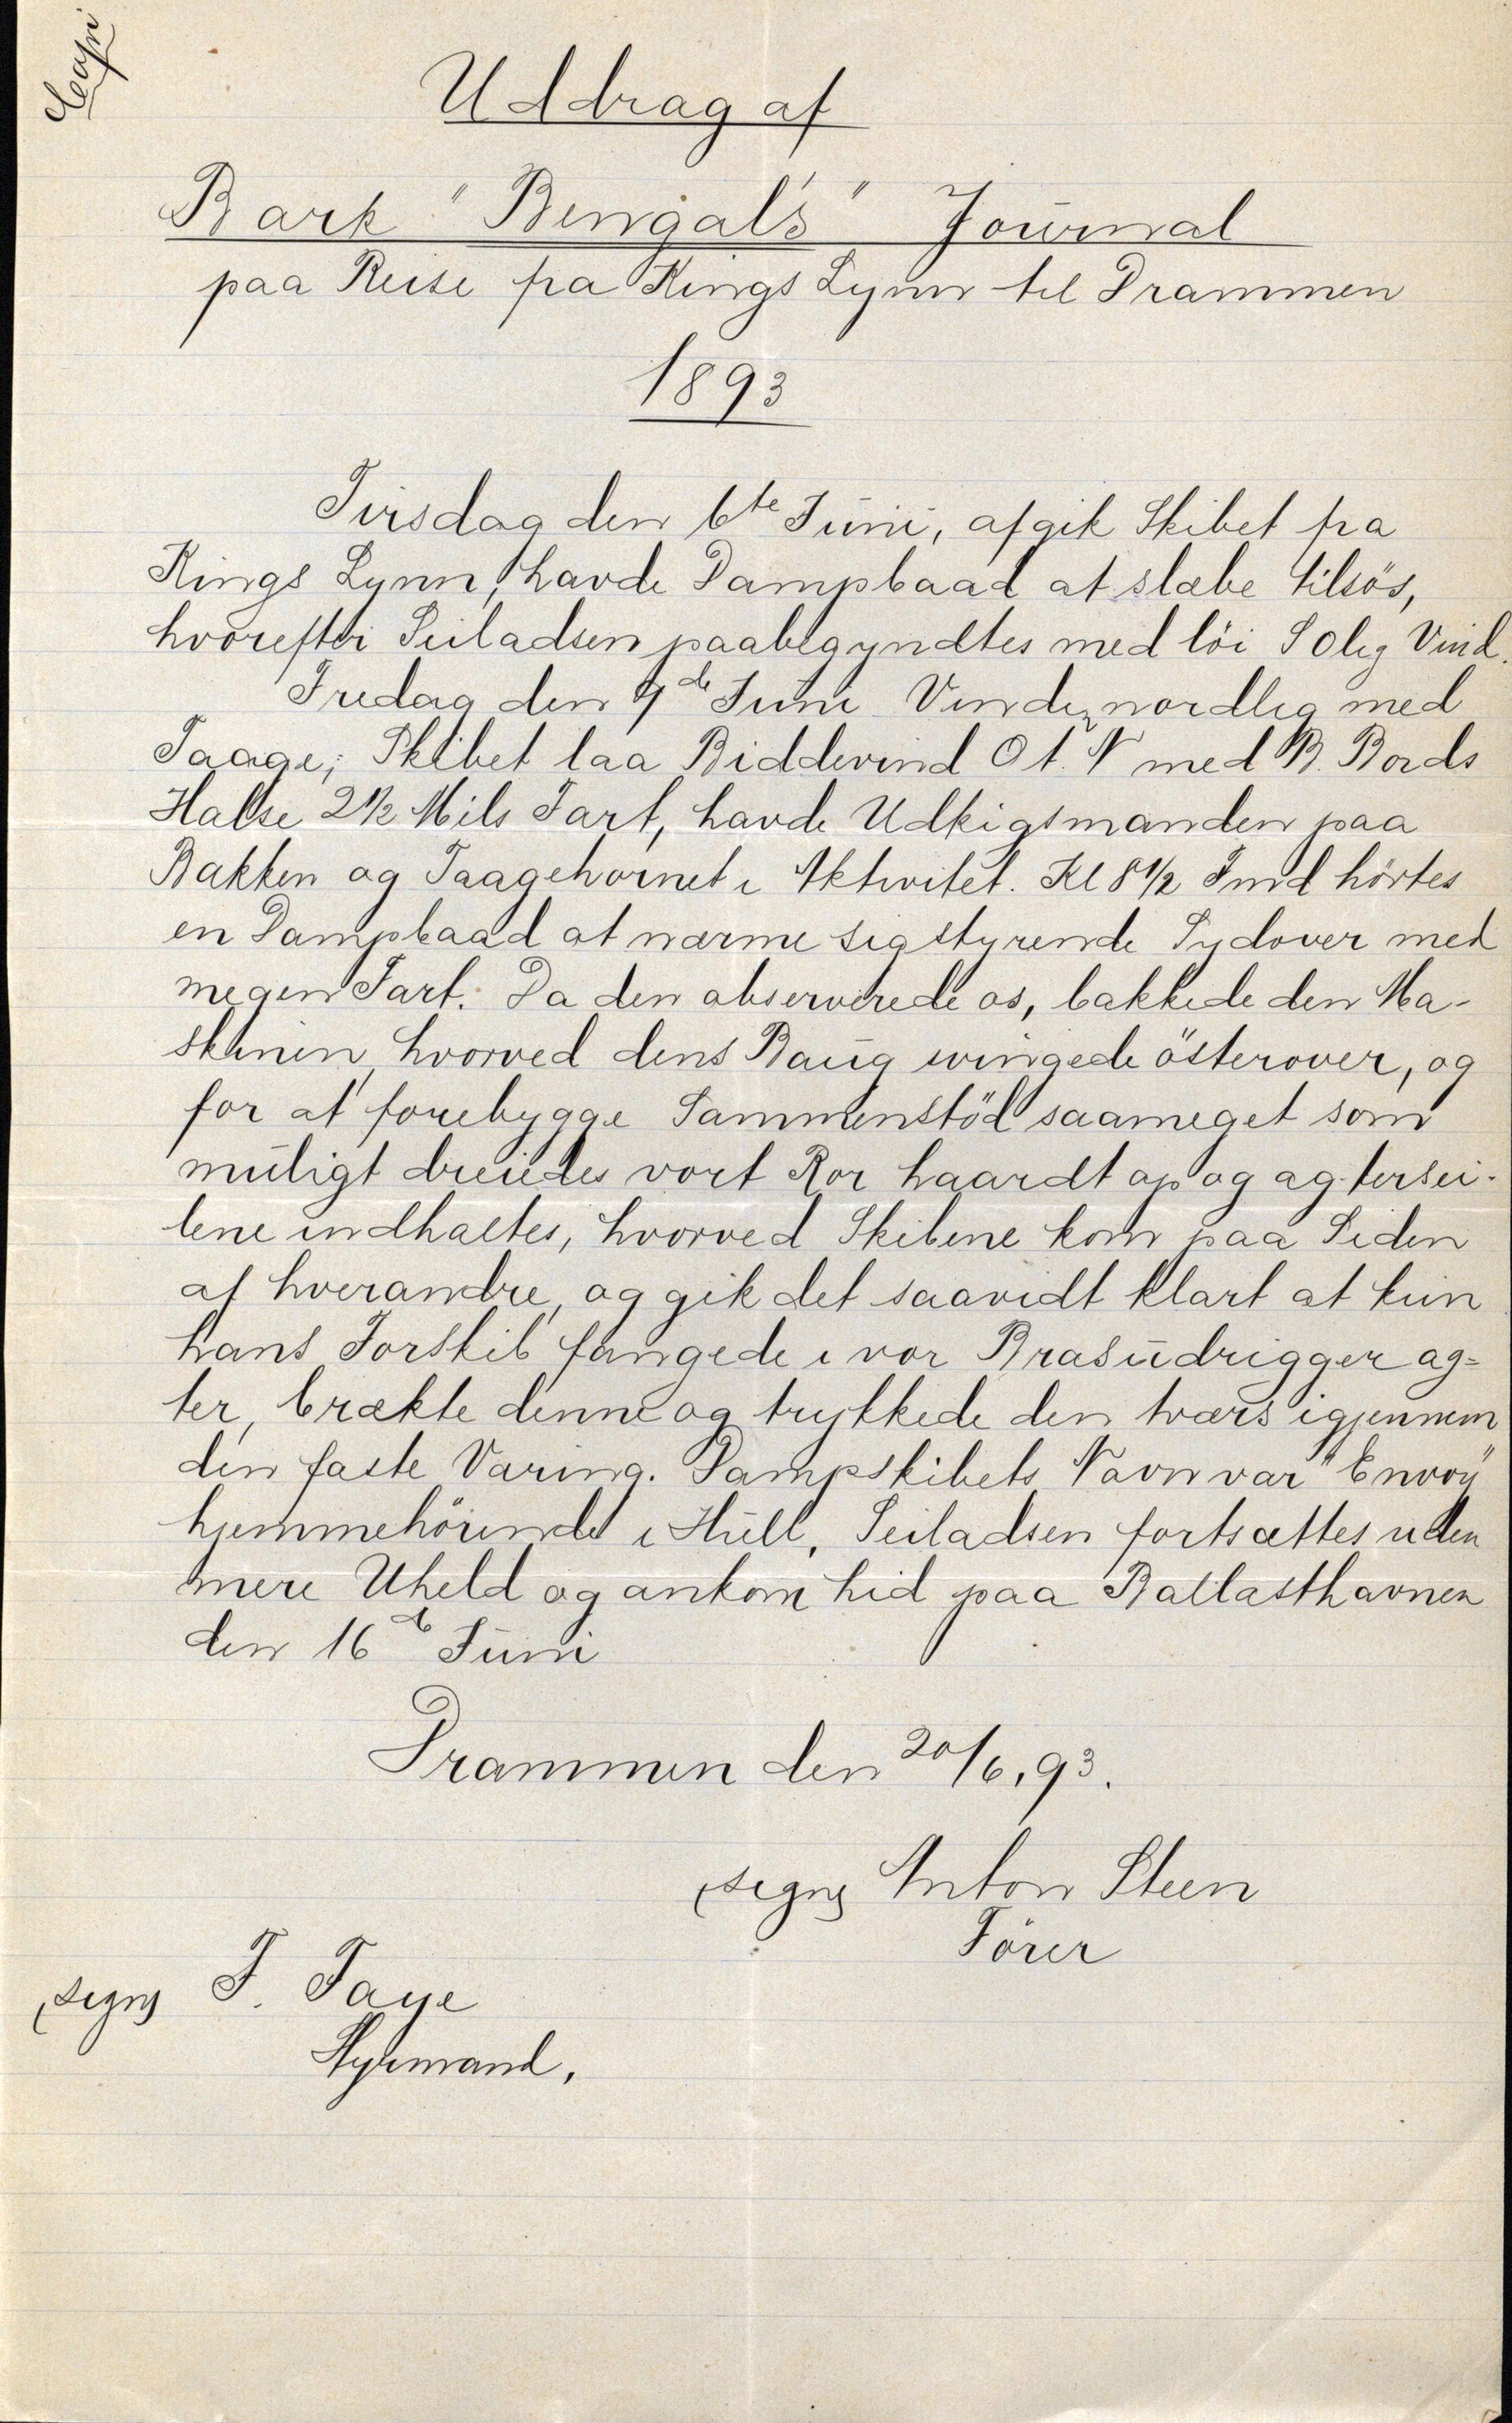 Copi
Uddrag af
Bark "Bengal's" Journal
paa Reise fra Kings Lynn til Drammen
1893
Tirsdag den 6te Juni, afgik Skibet fra
Kings Lynn, havde Dampbaad at slæbe tilsös,
hvorefter Seiladsen paabegyndtes med löi SOlig Vind.
Fredag den 9de Juni Vinden nordlig med
Taage; Skibet laa Biddevind O t. N med B. Bords
Halse 2 1/2 Mils Fart, havde Udkigsmanden paa
Bakken og Taagehornet i Aktivitet. Kl 8 1/2 Fmd hörtes
en Dampbaad at nærme sig styrende Sydover med
megen Fart. Da den observerede os, bakkede den Ma-
skinen, hvorved dens Baug svingede österover, og
for at forebygge Sammenstöd saameget som
muligt dreiedes vort Ror haardt op og agtersei-
lene indhaltes, hvorved Skibene kom paa Siden
af hverandre, og gik det saavidt klart at kun
hans Forskib fangede i vor Brasudrigger ag=
ter, brækte denne og trykkede den tværs igjennem
den faste Varing. Dampskibets Navn var "Envoy"
hjemmehörende i Hull. Seiladsen fortsættes uden
mere Uheld og ankom hid paa Ballasthavnen
den 16de Juni
Drammen den 20/6, 93.
(sign) Anton Steen
Förer
(sign) T. Faye
Styrmand,